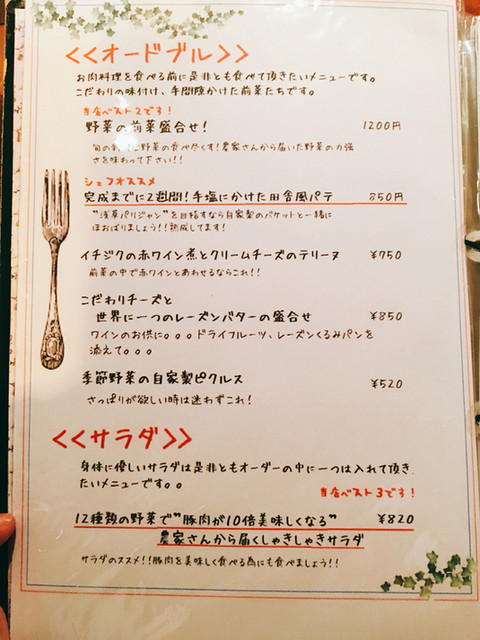 <<オードブル>>
お肉料理を食べる前に是非とも食べて頂きたいメニューです。
こだわりの味付け、手間隙かけた前菜たちです。
当店ベスト2です！
野菜の前菜盛合せ！ 1200円
旬の 野菜の食べ尽くす！農家さんから届いた野菜の力強
さを味わって下さい!!
シェフオススメ
完成までに2週間！手塩にかけた田舎風パテ 850円
"浅草パリジャン"を目指すなら自家製のバケットと一緒に
ほおばりましょう!!熟成してます！
イチジクの赤ワイン煮とクリームチーズのテリーヌ ¥750
前菜の中で赤ワインとあわせるならこれ!!
こだわりチーズと
世界に一つのレーズンバターの盛合せ ¥850
ワインのお供に。。。ドライフルーツ、レーズンくるみパンを
添えて。。。
季節野菜の自家製ピクルス ¥520
さっぱりが欲しい時は迷わずこれ！
<<サラダ>>
身体に優しいサラダは是非ともオーダーの中に一つは入れて頂き
たいメニューです。。
当店ベスト3です！
12種類の野菜で"豚肉が10倍美味しくなる" ¥820
農家さんから届くしゃきしゃきサラダ
サラダのススメ!!豚肉を美味しく食べる為にも食べましょう!!